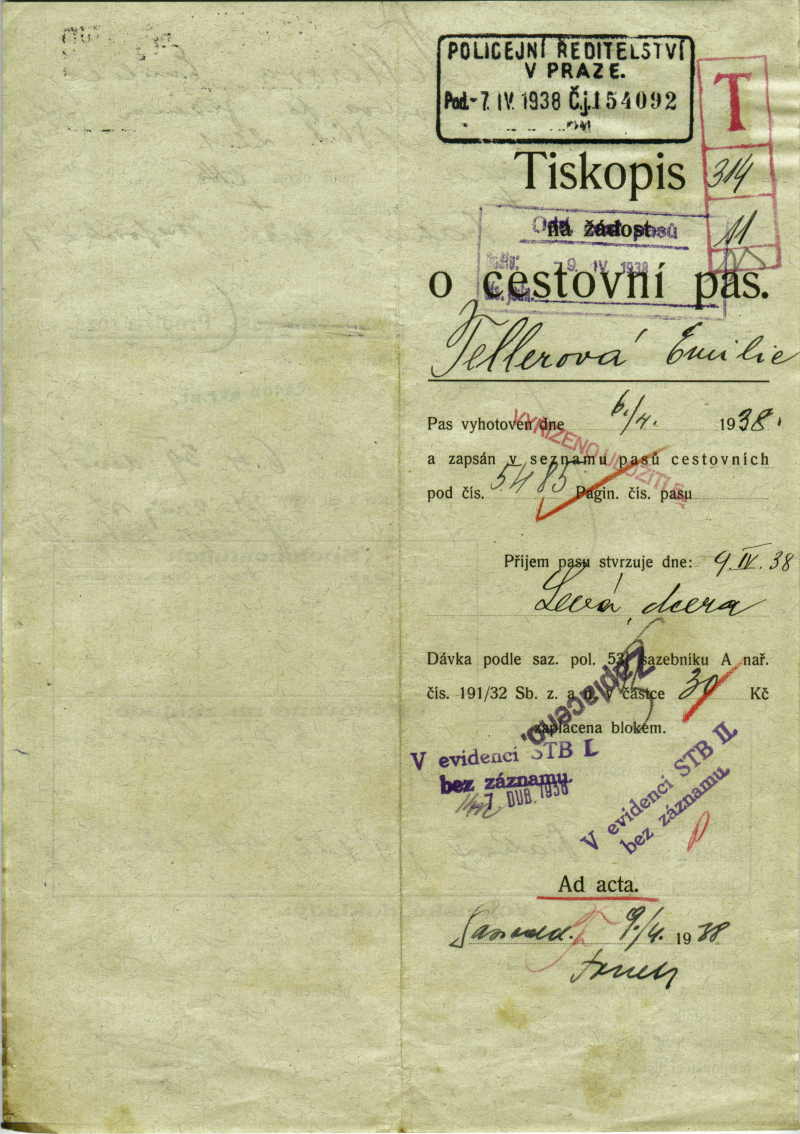 POLICEJNÍ ŘEDITELSTVÍ
V PRAZE.
Pod. -7. IV. 1938 Č.j. 154092
T
Tiskopis
314
na žádost
11
9. IV. 1938
o cestovní pas.
Tellerová Emilie
Pas vyhotoven dne 6./4. 1938.
VYŘÍZENO ULOŽITI
a zapsán v seznamu pasů cestovních
pod čís. 5485 Pagin. čís. pasu
Příjem pasu stvrzuje dne: 9. IV. 38
dcera
Dávka podle saz. pol. 53 sazebníku A nař.
čís. 191/32 Sb. z. a n. v částce 30 Kč
Zaplaceno.
zaplacena blokem.
V evidenci STB I.
bez záznamu
7 DUB. 1938
V evidenci STB II.
bez záznamu
Ad acta.
9./4. 1938